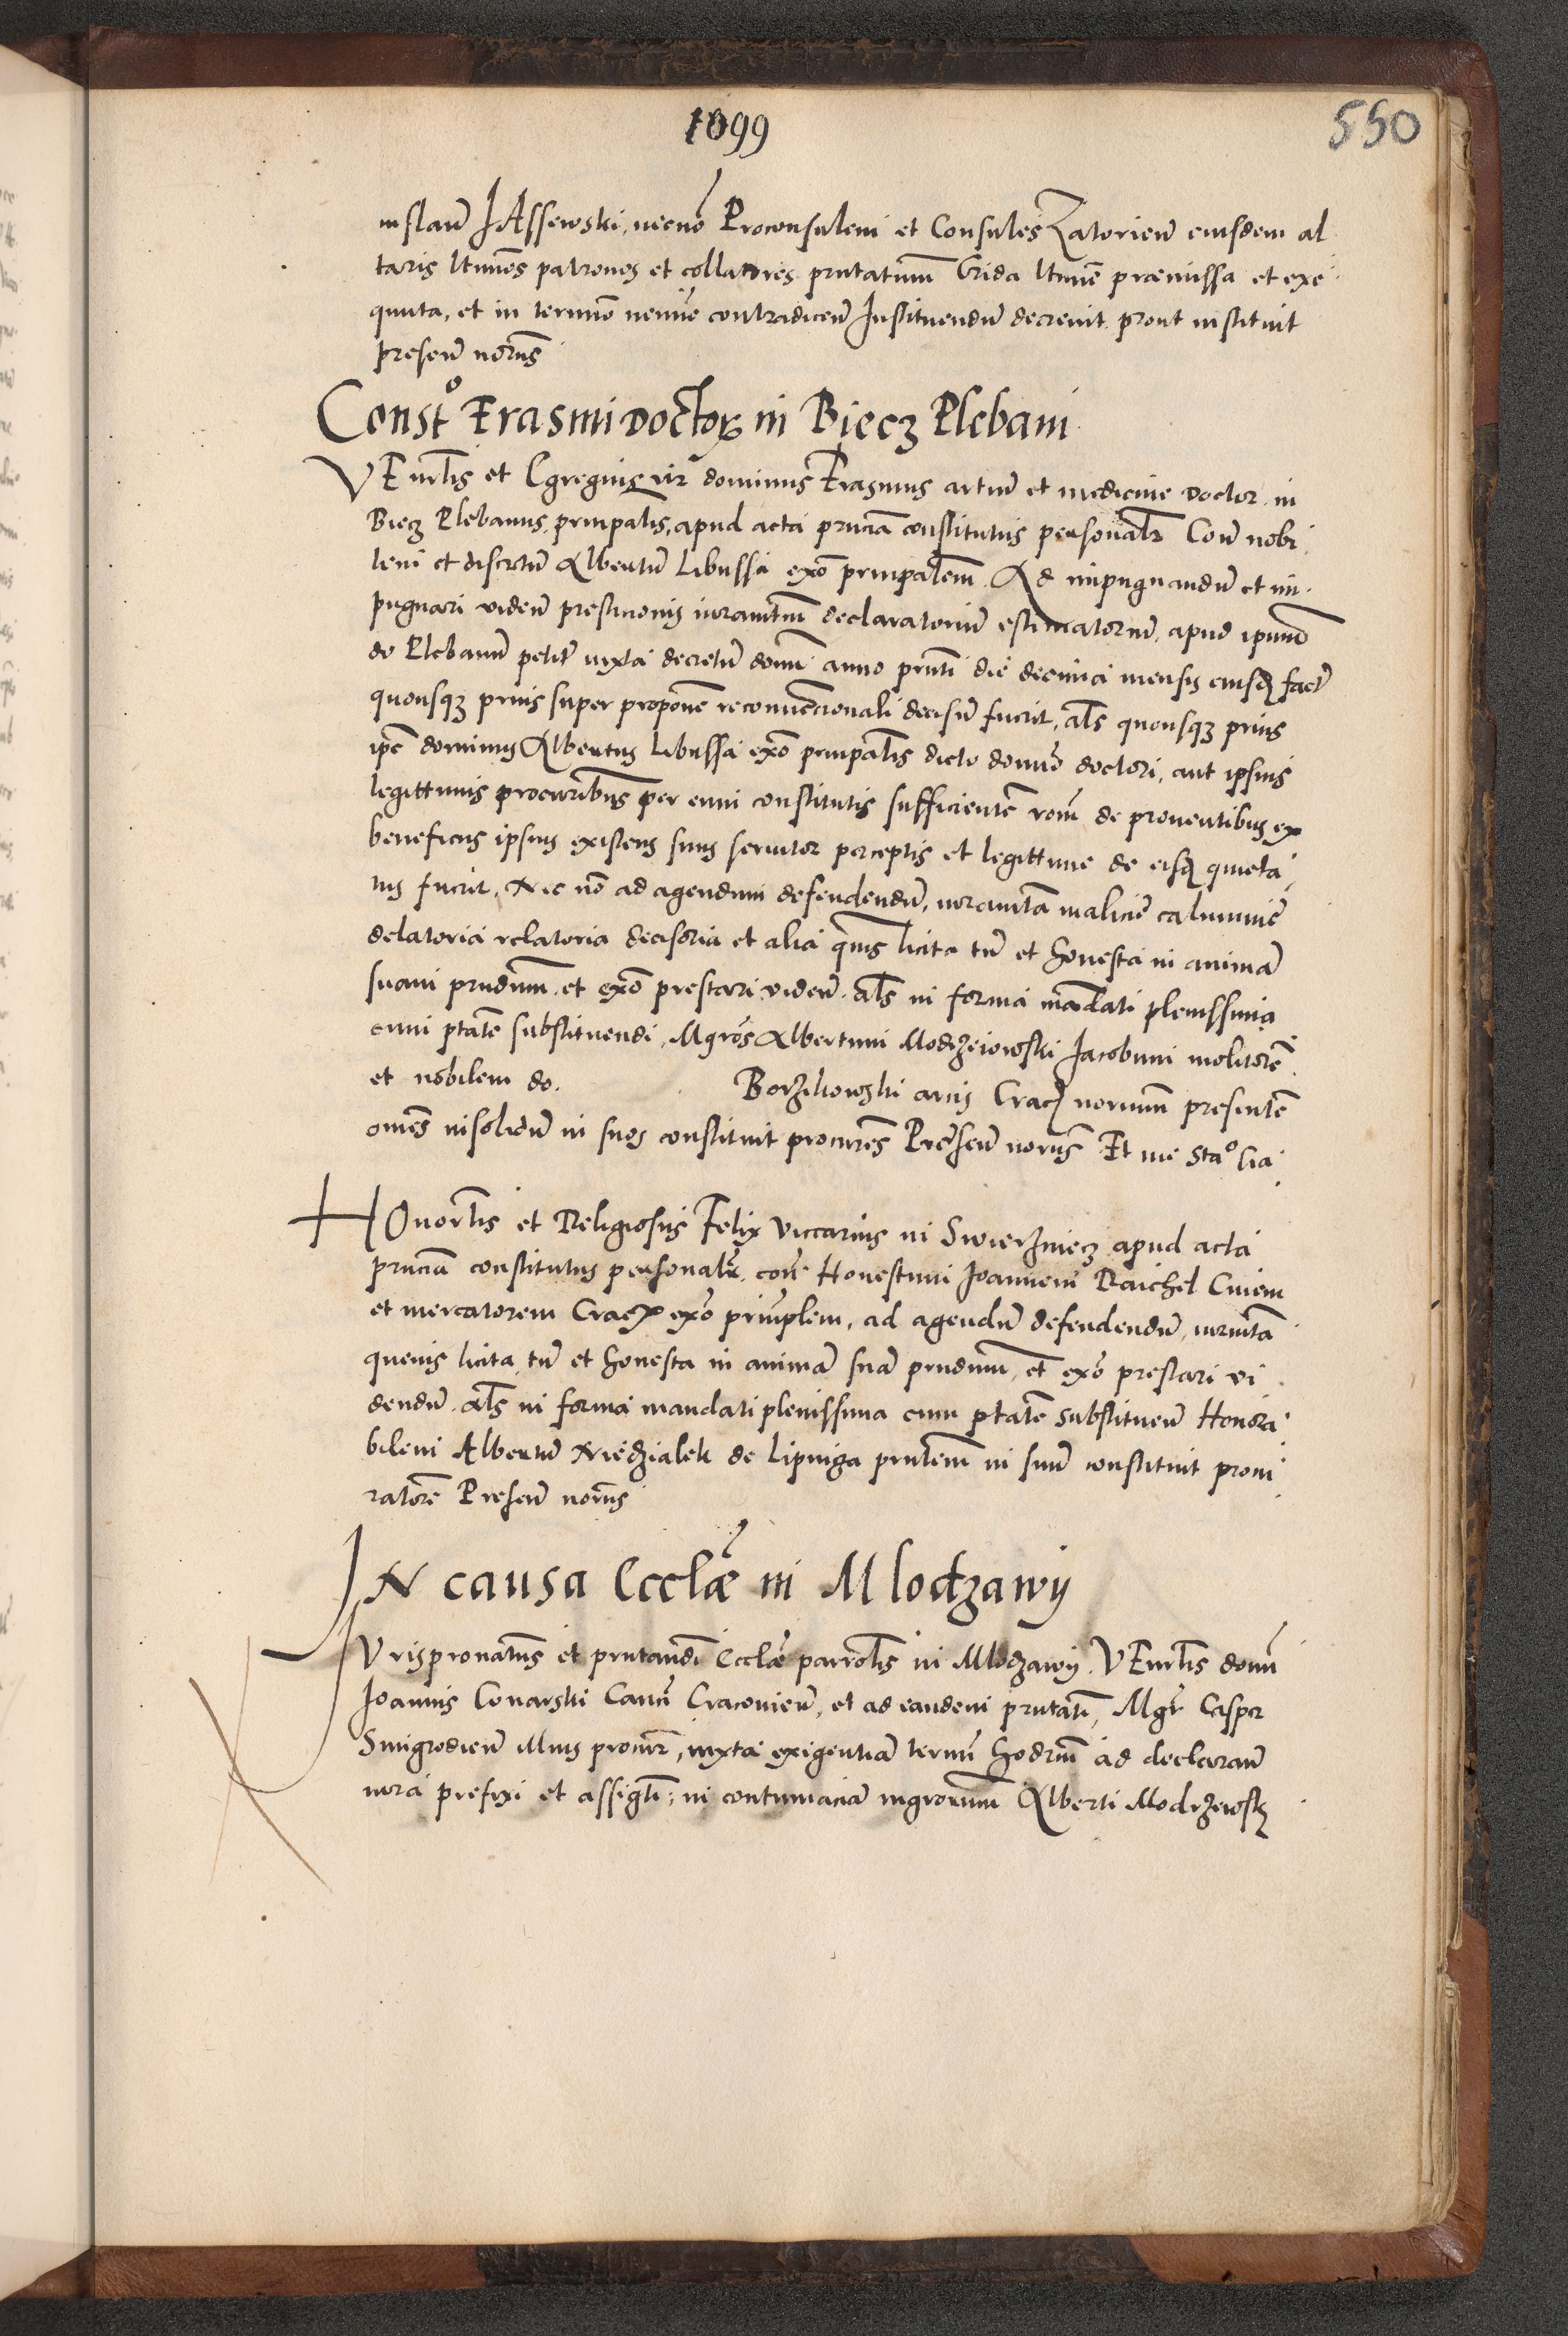 1099
550
nislaum Jassewski, necno Proconsulem et Consules Zatorien eiusdem al
taris ltimos patronos et collatores prntatum Crida ltime præmissa et exe
quuta, et in termino nemine contradicen Instituendum decrevit prout instituit
presen norus
Const° Erasmi doctor in Biecz Plebani
VEnrlis et Egregius vir dominus Erasmus artium et medicine Doctor in
Biecz Plebanus prinpalis, apud acta pnciam constitutus personalr Com nobi
lem et discretum Albertum Libussa exo prinpalem Ad impugnandum et im
pugnari viden prestitionis iuramtum declaratorium estimatorum, apud ipsum
do Plebanum petitum iuxta decretum domi anno prnti die decimica mensis eiusd factum
quousq prius super propone reconuencionali decisum fuerit, als quousq prius
ipse dominus Albertus Libussa exo prinpalis dicto domino doctori, aut ipsius
legittimis procuribus per eum constitutis sufficientem rom de proventibus ex
beneficus ipsius existens suus servitor perceptis et legittime de eisd quieta
tus fuerit, Nec no ad agendum defendendum, iuramta malicie calumnie
delatoria relatoria decisoria et alia quevis licita tum et honesta in animam
suam prndum et exo prestari viden als in forma mandati plenissima
cum ptate substituendi Mgros Albertum Modrzeiowski Jacobum molitorem
et nobilem do. Borzikowski arcis Crac norium presentem
omes insolidum in suos constituit procures Presen norus Et me Sta° Lia
HOnorlis et Religiosus Felix Viccarius in Swierzinecz apud acta
prnciam constitutus personalr, come Honestum Joannem Raichel Civem
et mercatorem Crac exo prinplem, ad agendum defendendum, iuramta
quevis licita tum et honesta in animam suam prndum, et exo prestari vi
dendum als in forma mandati plenissima cum ptate substituen Honora
bilem Albertum Niedzialek de Lipniga prntem in suum constituit procu
ratore Presen norus
IN causa Ecclæ in Mlodzawy
IVrispronatus et prntandi Ecclæ parrolis in Mlodzawy VEnrlis domi
Joannis Conarski Canci Cracovien, et ad eandem prntati, Mgr Casper
Smigrodien illius procur, iuxta exigentiam termi hodrni ad declaran
iura prefixi et assigti, in contumaciam mgrorum Alberti Modrzewsk